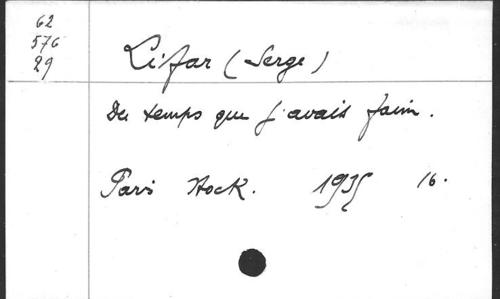 62
576
29
Lifar (Serge)
Du temps que j'avais faim.
Paris Stock. 1935 16.